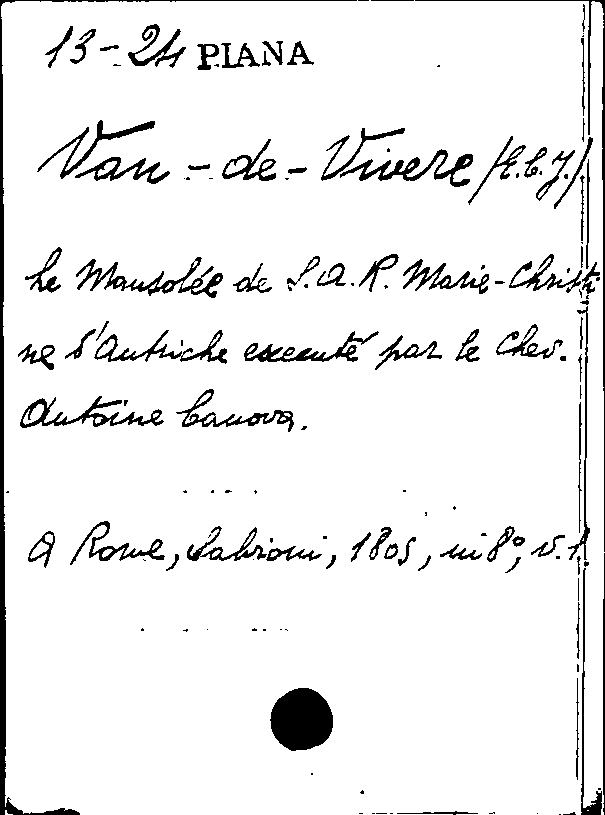 13-24 PIANA
Van-de-Vivere (E.C.J.)
Le Mausolée de S.A.R. Marie-Christi
ne d'Autriche executé par le Chev.
Antoine Canova.
A Rome, Salvioni, 1805, in 8°, v. 1.